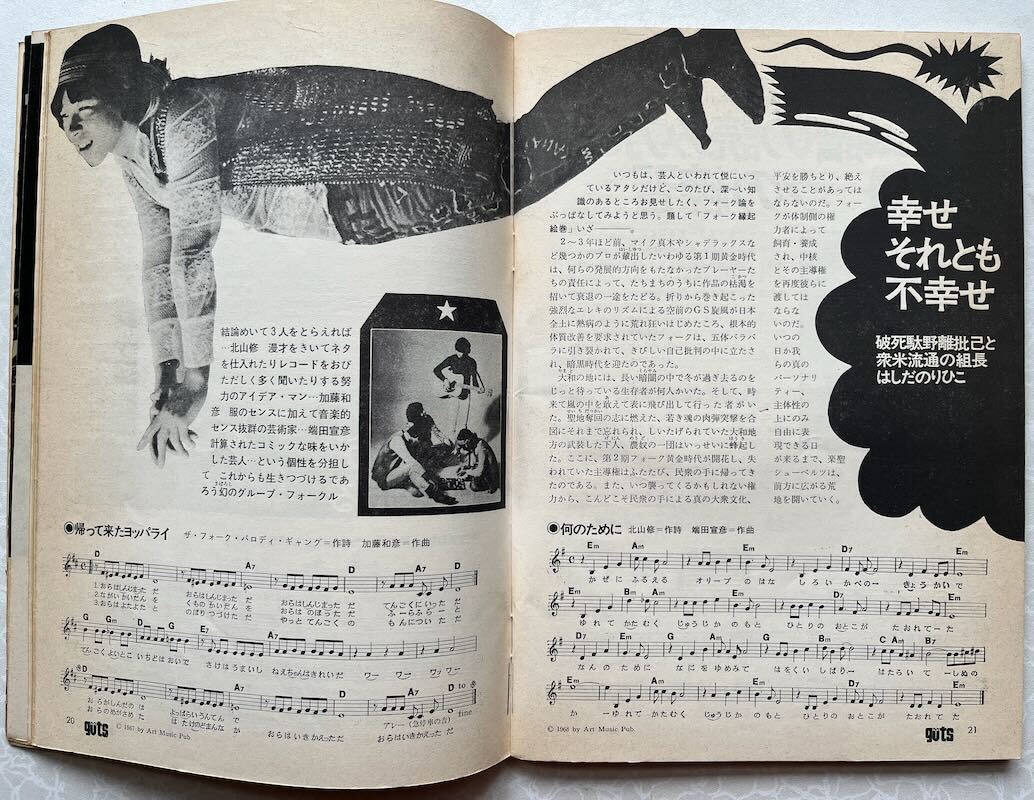 結論めいて3人をとらえれば
…北山修 漫才をきいてネタ
を仕入れたりレコードをおび
ただしく多く聞いたりする努
力のアイデア・マン…加藤和
彦 服のセンスに加えて音楽的
センス抜群の芸術家…端田宣彦
計算されたコミックな味をいか
した芸人…という個性を分担し
て これからも生きつづけるであ
ろう幻のグループ・フォークル
●帰って来たヨッパライ ザ・フォーク・パロディ・ギャング=作詩 加藤和彦=作曲
D A7 D A7 D
1.おらはしんじまっただ おらはしんじまっただ おらはしんじまっただ てんごくにいっただ
2.ながいかいだんを くものかいだんを おらはのぼっただ ふーらふらーと
3.おらはよたよたと のぼりつづけた やっとてんごくの もんについただ
G Gm D G E7 A7
てんごくよいとこ いちどはおいで さけはうまいし ねえちゃんはきれいだ ワー ワー ワッ ワー
D A7 D A7 D to
おらがしんだのは よっぱらいうんてんで おらはいきかえっただ おらはいきかえっただ
おらのめがさめた はたけのどまんなか
アレー(急停車の音) fine
20
© 1967 by Art Music Pub.
guts
いつもは、芸人といわれて悦にいっ
ているアタシだけど、このたび、深〜い知
識のあるところお見せしたく、フォーク論を
ぶっぱなしてみようと思う。題して「フォーク縁起
絵巻」いざ――。
2〜3年ほど前、マイク真木やシャデラックスな
ど幾つかのプロが輩出したいわゆる第1期黄金時代
は、何らの発展的方向をもたなかったプレーヤーた
ちの責任によって、たちまちのうちに作品の枯渇を
招いて衰退の一途をたどる。折りから巻き起こった
強烈なエレキのリズムによる空前のGS旋風が日本
全土に熱病のように荒れ狂いはじめたころ、根本的
体質改善を要求されていたフォークは、五体バラバ
ラに引き裂かれて、きびしい自己批判の中に立たさ
れ、暗黒時代を迎えたのであった。
大和の地には、長い暗闇の中で冬が過ぎ去るのを
じっと待っている生存者が何人かいた。そして、時
来て嵐の中を敢えて表に飛び出して行った者がい
た。聖地奪回の志に燃えた、若き魂の肉弾突撃を合
図にそれまで忘れられ、しいたげられていた大和地
方の武装した下人、農奴の一団はいっせいに蜂起し
た。ここに、第2期フォーク黄金時代が開花し、失
われていた主導権はふたたび、民衆の手に帰ってき
たのである。また、いつ襲ってくるかもしれない権
力から、こんどこそ民衆の手による真の大衆文化、
平安を勝ちとり、絶え
させることがあっては
ならないのだ。フォー
クが体制側の権
力者によって
飼育・養成
され、中核
とその主導権
を再度彼らに
渡しては
ならな
いのだ。
いつの
日か我
らの真の
パーソナリ
ティー、
主体性の
上にのみ
自由に表
現できる日
が来るまで、楽聖
シューベルツは、
前方に広がる荒
地を開いていく。
幸せ
それとも
不幸せ
破死駄野離批己と
衆米流通の組長
はしだのりひこ
●何のために 北山修=作詩 端田宣彦=作曲
Em Am Em D7 Em
かぜに ふるえる オリーブ の はな しろい かべのー きょうかいで
Em Bm Am Em D7 Em
ゆれて かたむく じゅうじか のもと ひとりの おとこが たおれてーた
D7 Em G Am G Bm C Am B7
なんの ために なにを ゆめみて はをくい しばりー はたらいてーしぬの
Em Am Em D7 Em
かーゆれて かたむく じゅうじか のもと ひとりの おとこが たおれてた
© 1968 by Art Music Pub.
guts
21